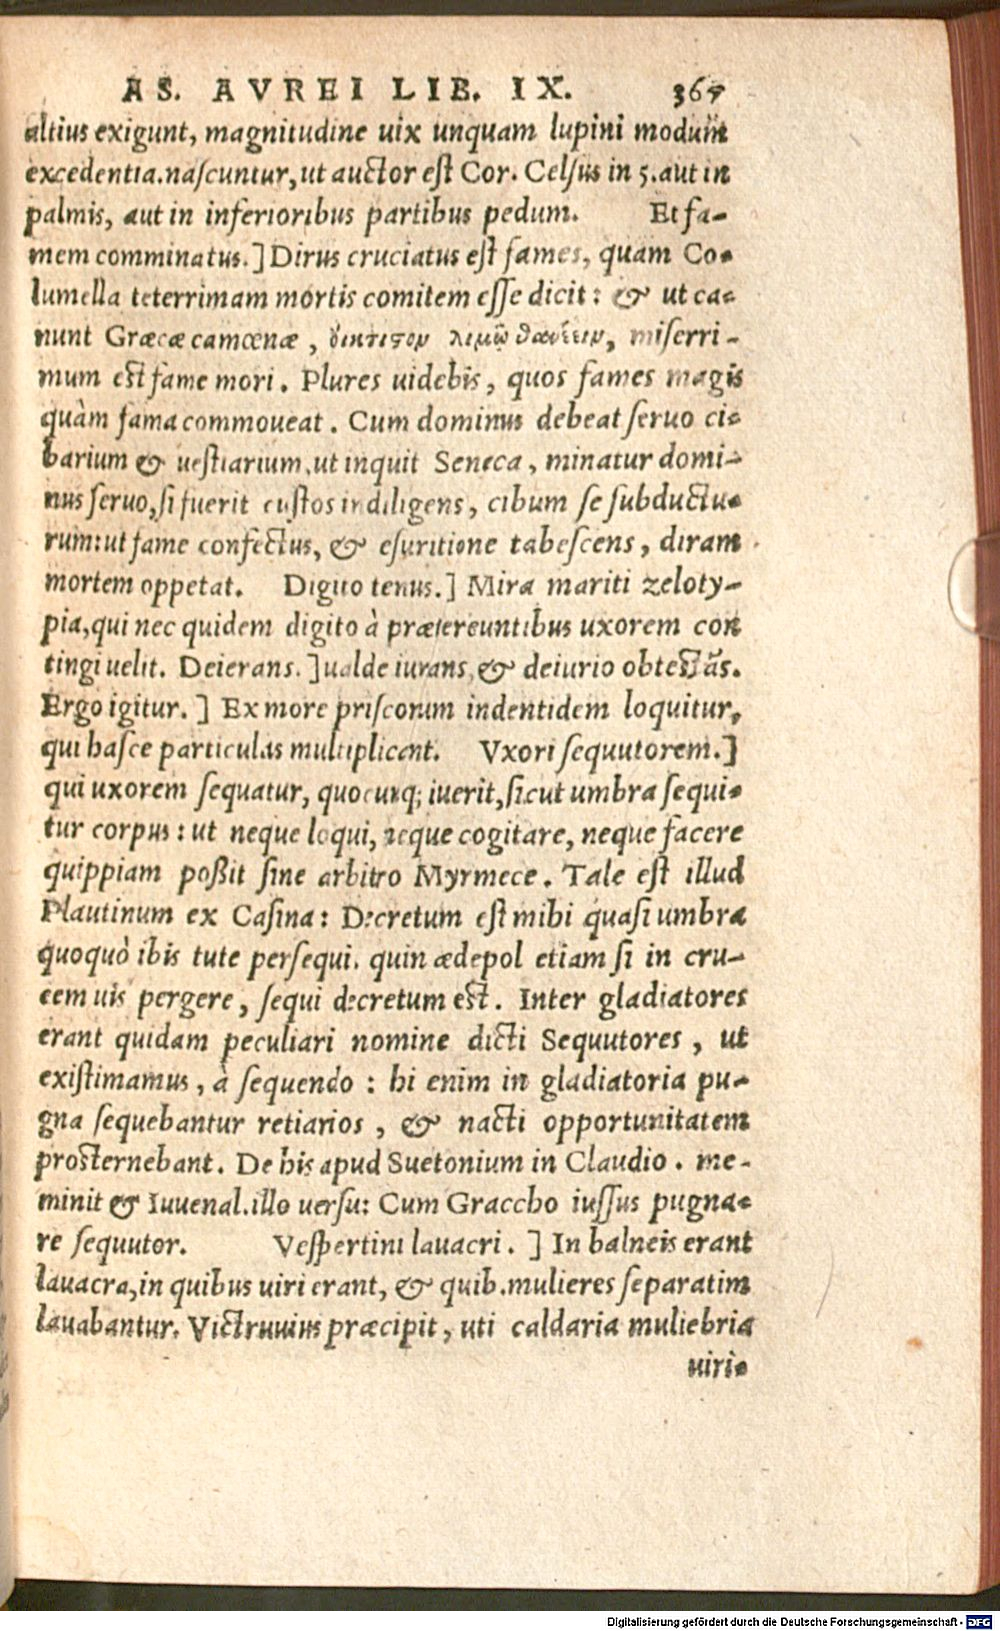 AS. AVREI LIB. IX. 367
altius exigunt, magnitudine uix unquam lupini modum
excedentia. nascuntur, ut auctor est Cor. Celsus in 5. aut in
palmis, aut in inferioribus partibus pedum. Et fa-
mem comminatus.] Dirus cruciatus est fames, quam Co-
lumella teterrimam mortis comitem esse dicit: & ut ca-
nunt Græcæ camœnæ, λιμῶ, miserri-
mum est fame mori. Plures uidebis, quos fames magis
quàm fama commoueat. Cum dominus debeat seruo ci-
barium & uestiarium, ut inquit Seneca, minatur domi-
nus seruo, si fuerit custos indiligens, cibum se subductu-
rum: ut fame confectus, & esuritione tabescens, diram
mortem oppetat. Digito tenus.] Mira mariti zeloty-
pia, qui nec quidem digito à prætereuntibus uxorem con
tingi uelit. Deierans.] ualde iurans, & deiurio obtestãs.
Ergo igitur.] Ex more priscorum indentidem loquitur,
qui hasce particulas multiplicant. Vxori sequutorem.]
qui uxorem sequatur, quocunq; iuerit, sicut umbra sequi-
tur corpus: ut neque loqui, neque cogitare, neque facere
quippiam poßit sine arbitro Myrmece. Tale est illud
Plautinum ex Casina: Decretum est mihi quasi umbra
quoquò ibis tute persequi. quin ædepol etiam si in cru-
cem uis pergere, sequi decretum est. Inter gladiatores
erant quidam peculiari nomine dicti Sequutores, ut
existimamus, à sequendo: hi enim in gladiatoria pu-
gna sequebantur retiarios, & nacti opportunitatem
prosternebant. De his apud Suetonium in Claudio. me-
minit & Iuuenal. illo uersu: Cum Graccho iussus pugna-
re sequutor. Vespertini lauacri.] In balneis erant
lauacra, in quibus uiri erant, & quib. mulieres separatim
lauabantur. Victruuius præcipit, uti caldaria muliebria
uiri-
Digitalisierung gefördert durch die Deutsche Forschungsgemeinschaft - DFG